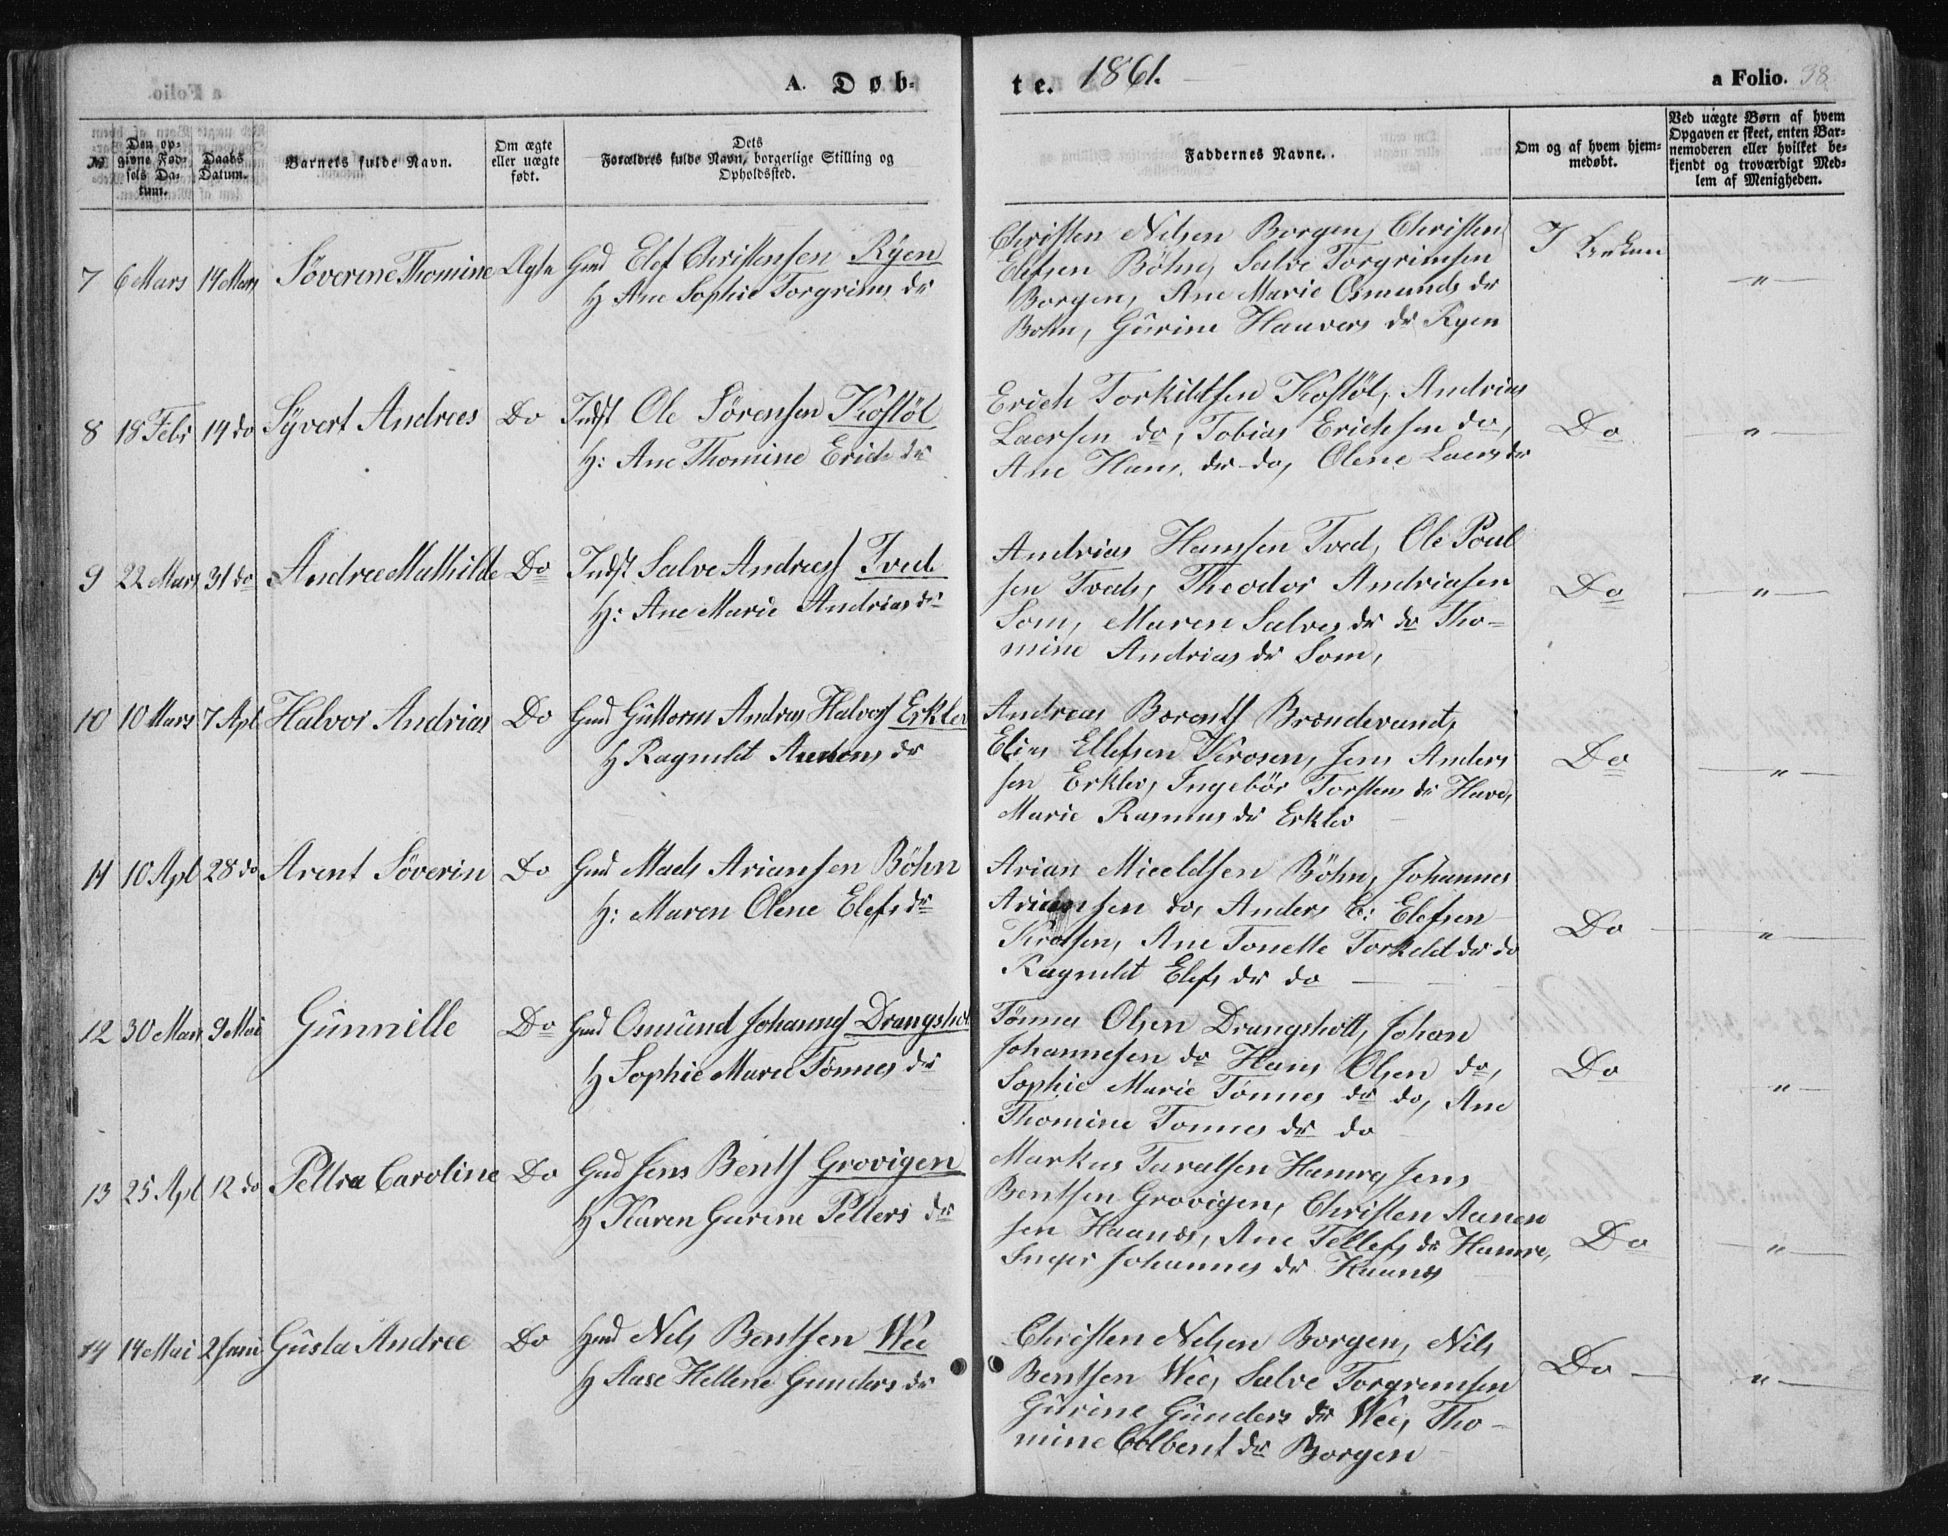 A. Døb-
te. 1861.
a Folio. 38.
No
Den op-
givne Fød-
sels Da-
tum.
Daabs
Datum.
Barnets fulde Navn.
Om ægte
eller uægte
født.
Dets
Forældres fulde Navn, borgerlige Stilling og
Opholdssted.
Faddernes Navne.
Om og af hvem hjem-
medøbt.
Ved uægte Børn af hvem
Opgaven er skeet, enten Bar-
nemoderen eller hvilket be-
kjendt og troværdigt Med-
lem af Menigheden.
7 6 Mars 14 Mars Söverine Thomine Ægte Gmd Elef Christensen Ryen
H Ane Sophie Torgrims dr
Christen Nilsen Borgen, Christen
Elefsen Böhn, Salve Torgrimsen
Borgen, Ane Marie Osmunds dr
Bohn, Gurine Hauvers dr Ryen
I Kirken
"
8 18 Febr 14 do Syvert Andrees Do Indst Ole Sörensen Kostöl
H: Ane Thomine Erichs dr
Erich Torkildsen Kostöl, Andrias
Laersen do, Tobias Erichsen do,
Ane Hans dr do, Olene Laers dr
Do "
9 22 Mars 31 do Andree Mathilde Do Indst Salve Andreas Tved
H: Ane Marie Andrias dr
Andrias Hansen Tved, Ole Poul
sen Tveds, Theodor Andriasen
Som, Maren Salves dr do Tho-
mine Andrias dr Som,
Do "
10 10 Mars 7 Apl Halvor Andrias Do Gmd Guttorm Andreas Halvors Erklev
H Ragnild Andens dr
Andreas Berents Brøndevand,
Elias Ellefsen Krosen, Jens Anders
sen Erklev, Ingebör Torstens dr Have,
Marie Rasmus dr Erklev
Do "
11 10 Apl 28 do Arent Söverin Do Gmd Mads Ariansen Böhn
H: Maren Olene Elefs dr
Arian Miceldsen Böhn, Johannes
Ariansen do, Anders C: Elefsen
Krosen, Ane Tonette Torkeld dr do
Ragnild Elefs dr do
Do "
12 30 Mars 9 Mai Gunnille Do Gmd Osmund Johannes Drangsholt
H Sophie Marie Tönnes dr
Tönnes Olsen Drangsholt, Johan
Johannesen do Hans Olsen do,
Sophie Marie Tönnes dr do, Ane
Thomine Tonnes dr do
Do "
13 25 Apl 12 do Pettra Caroline Do Gmd Jens Bents Grovigen
H Karen Gurine Petters dr
Markus Taralsen Hamre, Jens
Bentsen Grovigen, Christen Aanen
sen Haanes, Ane Tellefs dr Hamre,
Inger Johannes dr Haanes
Do "
14 14 Mai 2 Juni Gusta Andree Do Gmd Nels Bentsen Wee
H Aase Hellene Gunders dr
Christen Nelsen Borgen, Nils
Bentsen Wee, Salve Torgrimsen
Gurine Gunders dr Wee, Tho-
mine Colbent dr Borgen
Do "